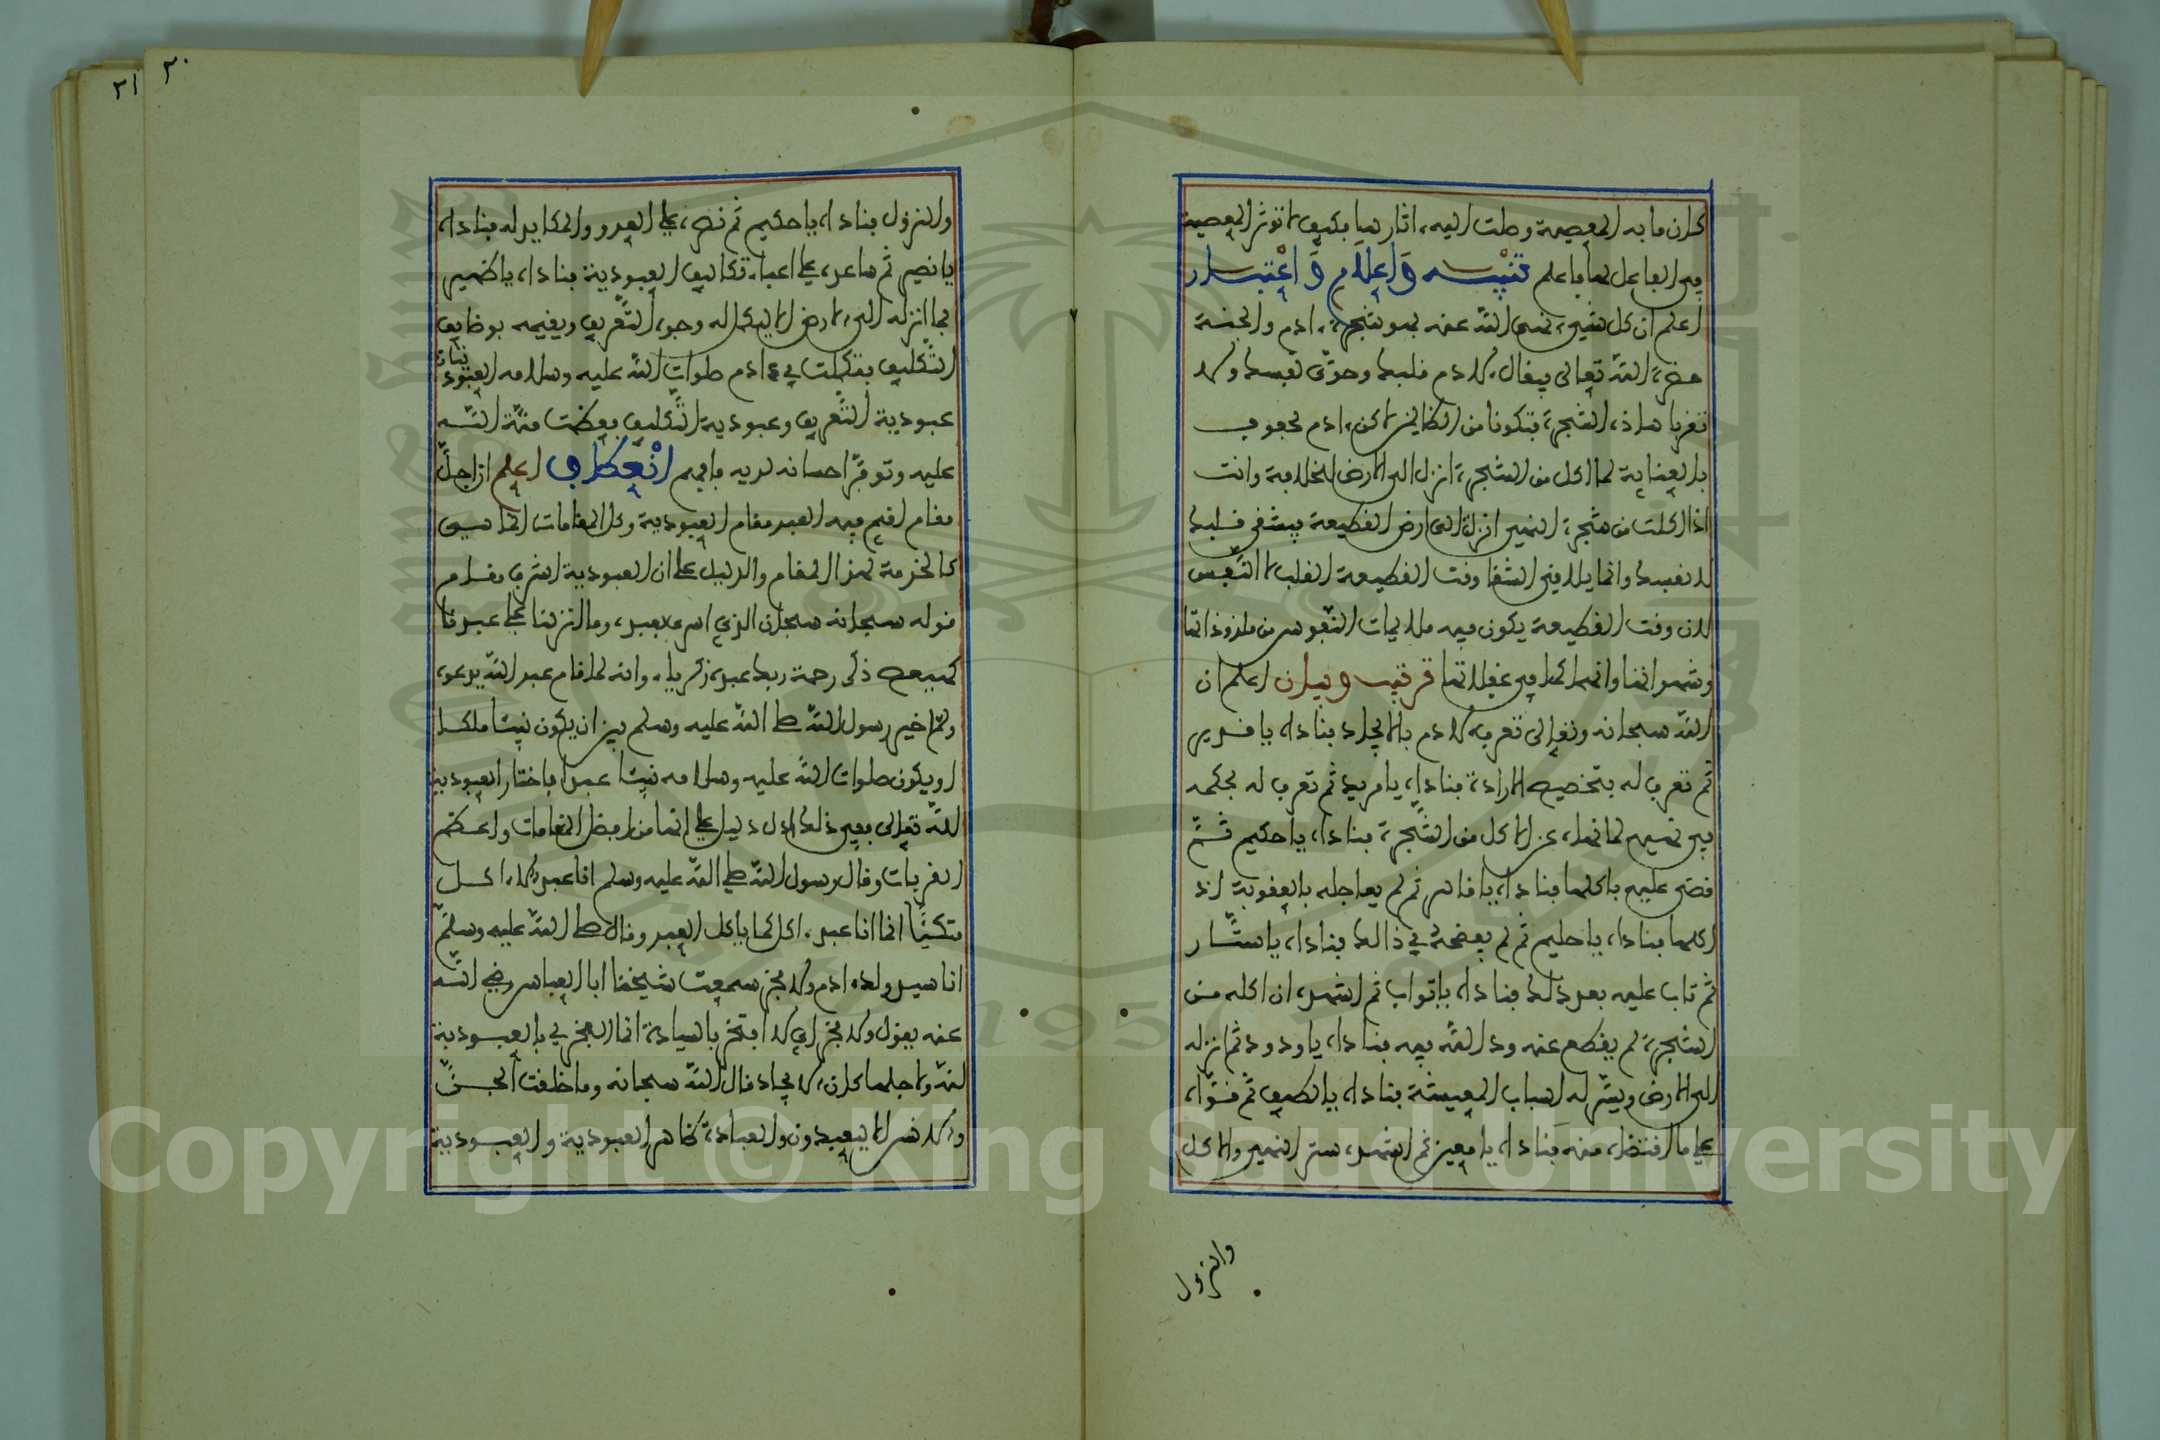 كان ما به المعصية وصلت اليه اثارها فكيف لا تؤثر المعصية
في الفاعل لها فاعلم تنبيه واعلام واعتبار
اعلم ان كل شيء نهى الله عنه فهو شجرة ادم والجنة
حضرة الله تعالى فيقال لادم قلبك وحوى نفسك ولا
تقربا هاذه الشجرة فتكونا من الظالمين لاكن ادم محفوف
بالعناية لما اكل من الشجرة انزل الى الارض للخلافة وانت
اذا اكلت من شجرة النهي انزلت الى ارض القطيعة فيشقى قلبك
لا نفسك وانما يلاقي الشقا وقت القطيعة القلب لا النفس
لان وقت القطيعة يكون فيه ملايمات النفوس من ملذوذاتها
وشهواتها وانهماكها في غفلاتها ترتيب وبيان اعلم ان
الله سبحانه وتعالى تعرف لادم بالايجاد فناداه يا قدير
ثم تعرف له بتخصيص الارادة فناداه يا مريد ثم تعرف له بحكمه
في نهيه لما نهاه عن الاكل من الشجرة فناداه يا حكيم ثم
قضى عليه باكلها فناداه يا قاهر ثم لم يعاجله بالعقوبة اذ
اكلها فناداه يا حليم ثم لم يفضحه في ذالك فناداه يا ستار
ثم تاب عليه بعد ذلك فناداه يا تواب ثم اشهده ان اكله من
الشجرة لم يقطع عنه ود الله فيه فناداه يا ودود ثم انزله
الى الارض ويسر له اسباب المعيشة فناداه يا لطيف ثم قواه
على ما اقتضاه منه فناداه يا معين ثم اشهده سر النهي والاكل
والنزول
٣٠
٣١
والنزول فناداه يا حكيم ثم نصره على العدو والمكايد له فناداه
يا نصير ثم ساعده على اعباء تكاليف العبودية فناداه يا ظهير
فما انزله الى الارض الا ليكمل له وجوه التعريف ويقيمه بوظايف
التكليف فتكملت في ءادم صلوات الله عليه وسلامه العبوديتان
عبودية التعريف وعبودية التكليف فعظمت منة الله
عليه وتوفر احسانه لديه فافهم انعطاف اعلم ان اجل
مقام اقيم فيه العبد مقام العبودية وكل المقامات انما هي
كالخدمة لهذا المقام والدليل على ان العبودية اشرف مقام
قوله سبحانه سبحان الذي اسرى بعبده وما انزلنا على عبدنا
كهيعص ذكر رحمة ربك عبده زكرياء وانه لما قام عبد الله يدعوه
ولما خير رسول الله صلى الله عليه وسلم بين ان يكون نبيا ملكا
او يكون صلوات الله عليه وسلامه نبيا عبدا فاختار العبودية
لله تعالى ففي ذلك ادل دليل على انها من افضل المقامات واعظم
القربات وقال رسول الله صلى الله عليه وسلم انا عبد لا اكل
متكيا انما انا عبد اكل كما ياكل العبد وقال صلى الله عليه وسلم
انا سيد ولد ادم ولا فخر سمعت شيخنا ابا العباس رضي الله
عنه يقول ولا فخر اي لا افتخر بالسيادة انما الفخر لي بالعبودية
لله ولاجلها كان الايجاد قال الله سبحانه وما خلقت الجن
والانس الا ليعبدون والعبادة ظاهر العبودية والعبودية
Copyright © King Saud University
1957